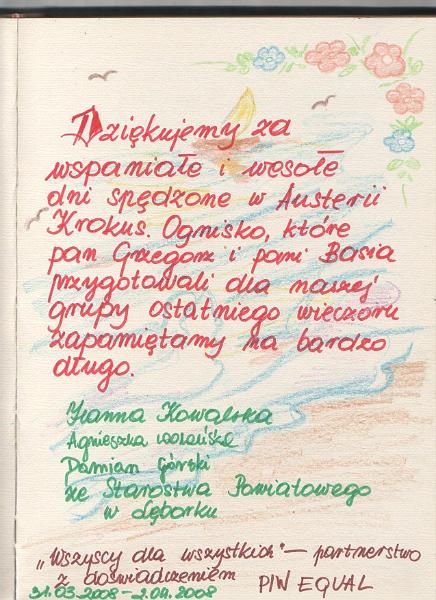 Dziękujemy za
wspaniałe i wesołe
dni spędzone w Austerii
Krokus. Ognisko, które
pan Grzegorz i pani Basia
przygotowali dla naszej
grupy ostatniego wieczoru
zapamiętamy na bardzo
długo.
Kowalska
Agnieszka
Damian Górski
ze Starostwa Powiatowego
w Lęborku
„Wszyscy dla wszystkich" – partnerstwo
z doświadczeniem PIW EQUAL
31.03.2008 – 2.04.2008